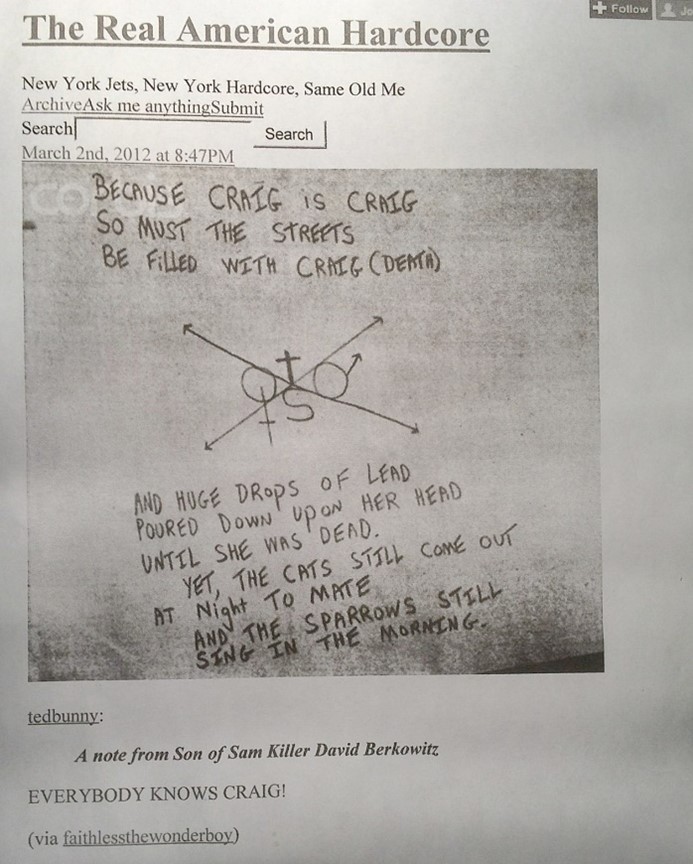 Follow
Jo
The Real American Hardcore
New York Jets, New York Hardcore, Same Old Me
ArchiveAsk me anythingSubmit
Search Search
March 2nd, 2012 at 8:47PM
BECAUSE CRAIG iS CRAIG
SO MUST THE STREETS
BE FiLLED WITH CRAIG (DEATH)
S
AND HUGE DROpS OF LEAD
POURED DOWN UpON HER HEAD
UNTIL SHE WAS DEAD.
YET, THE CATS STILL COME OUT
AT Night TO MATE
AND THE SPARROWS STILL
SING IN THE MORNING.
tedbunny:
A note from Son of Sam Killer David Berkowitz
EVERYBODY KNOWS CRAIG!
(via faithlessthewonderboy)